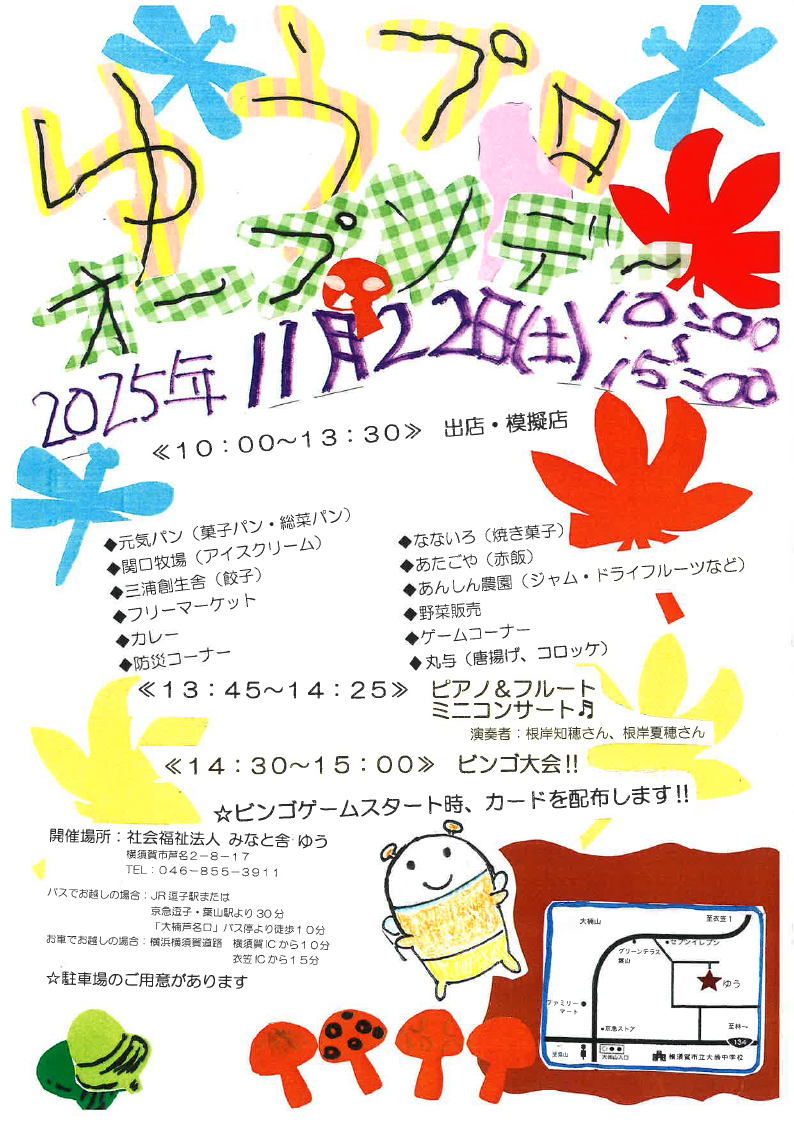 ゆうプロ
オープンデー
2025年 11月22日(土) 10:00〜15:00
≪10:00〜13:30≫ 出店・模擬店
◆元気パン（菓子パン・総菜パン）
◆関口牧場（アイスクリーム）
◆三浦創生舎（餃子）
◆フリーマーケット
◆カレー
◆防災コーナー
◆なないろ（焼き菓子）
◆あたごや（赤飯）
◆あんしん農園（ジャム・ドライフルーツなど）
◆野菜販売
◆ゲームコーナー
◆丸与（唐揚げ、コロッケ）
≪13:45〜14:25≫ ピアノ＆フルート
ミニコンサート♬
演奏者：根岸知穂さん、根岸夏穂さん
≪14:30〜15:00≫ ビンゴ大会!!
☆ビンゴゲームスタート時、カードを配布します!!
開催場所：社会福祉法人 みなと舎 ゆう
横須賀市芦名2-8-17
TEL：046-855-3911
バスでお越しの場合：JR逗子駅または
京急逗子・葉山駅より30分
「大楠芦名口」バス停より徒歩10分
お車でお越しの場合：横浜横須賀道路 横須賀ICから10分
衣笠ICから15分
☆駐車場のご用意があります
大楠山
至衣笠1
セブンイレブン
グリーンテラス
ゆう
ファミリー
マート
京急ストア
至林→
134
至葉山
大楠山入口
横須賀市立大楠中学校